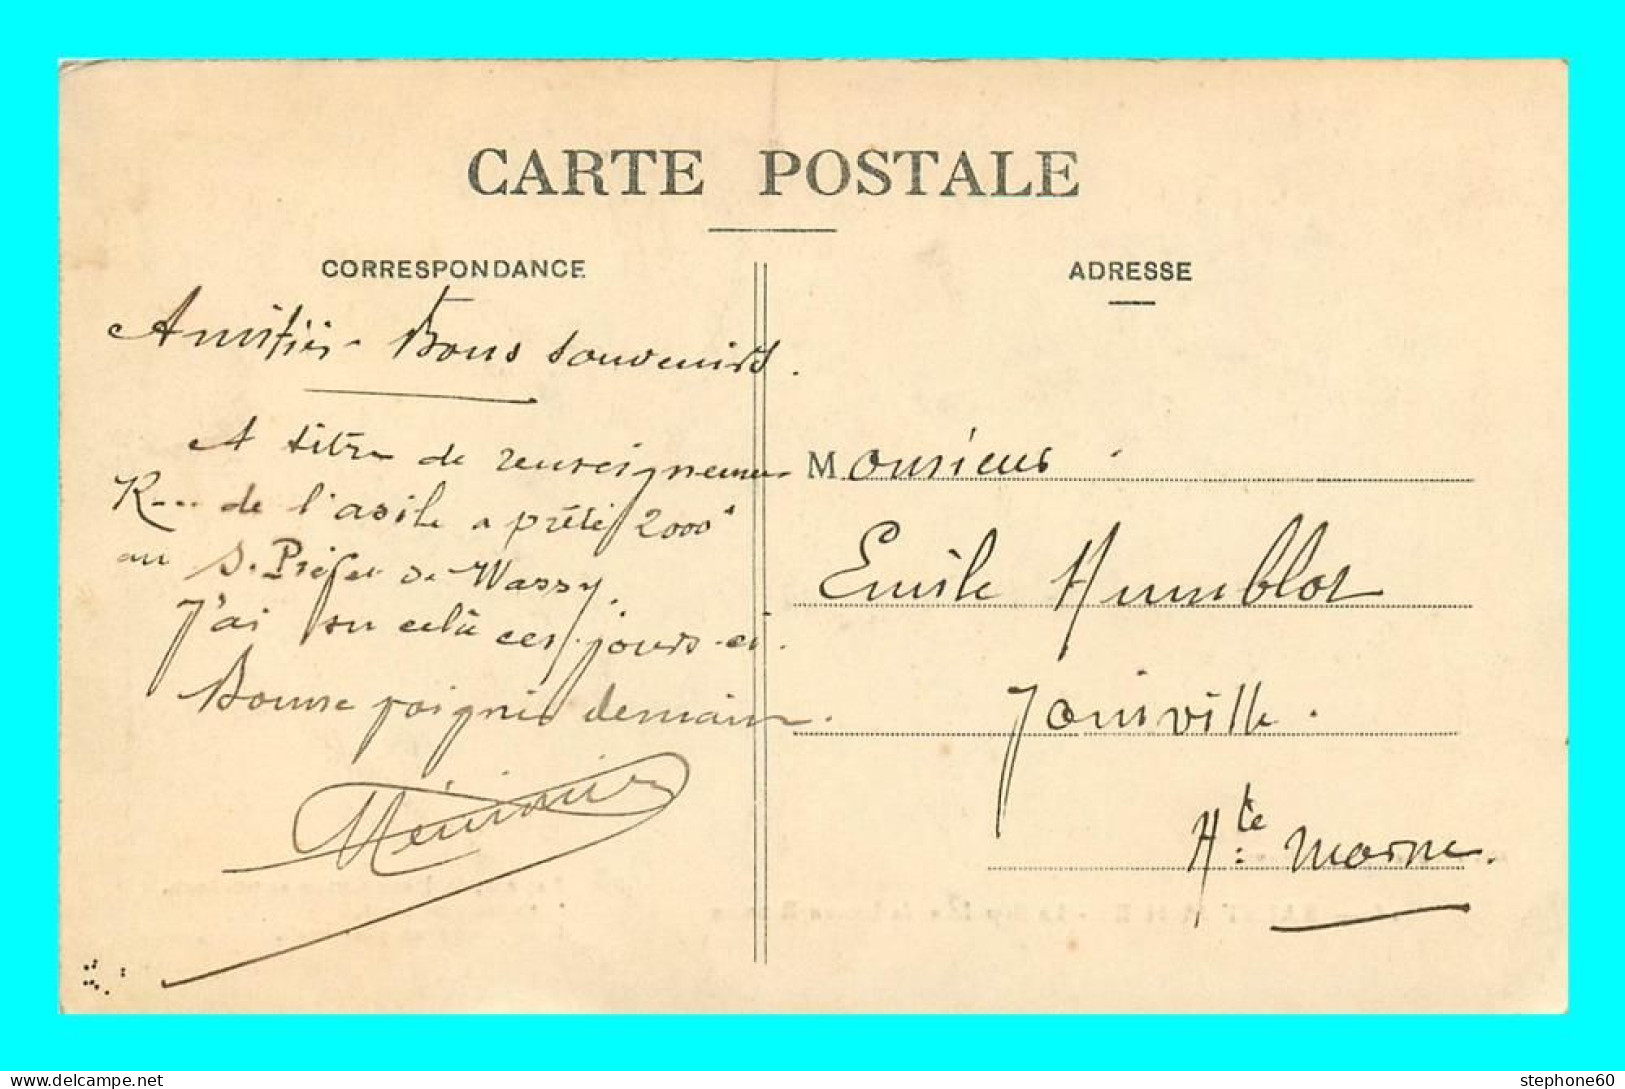 CARTE POSTALE
CORRESPONDANCE
Amitiés - Bons souvenirs.
A titre de renseignemen
R... de l'asile a prêté 2000
au S. Préfet de Wassy.
J'ai su celà ces jours-ci.
Bonne poignée demain.
ADRESSE
Monsieur
Emile Humblot
Joinville.
Hte: Marne.
stephone60